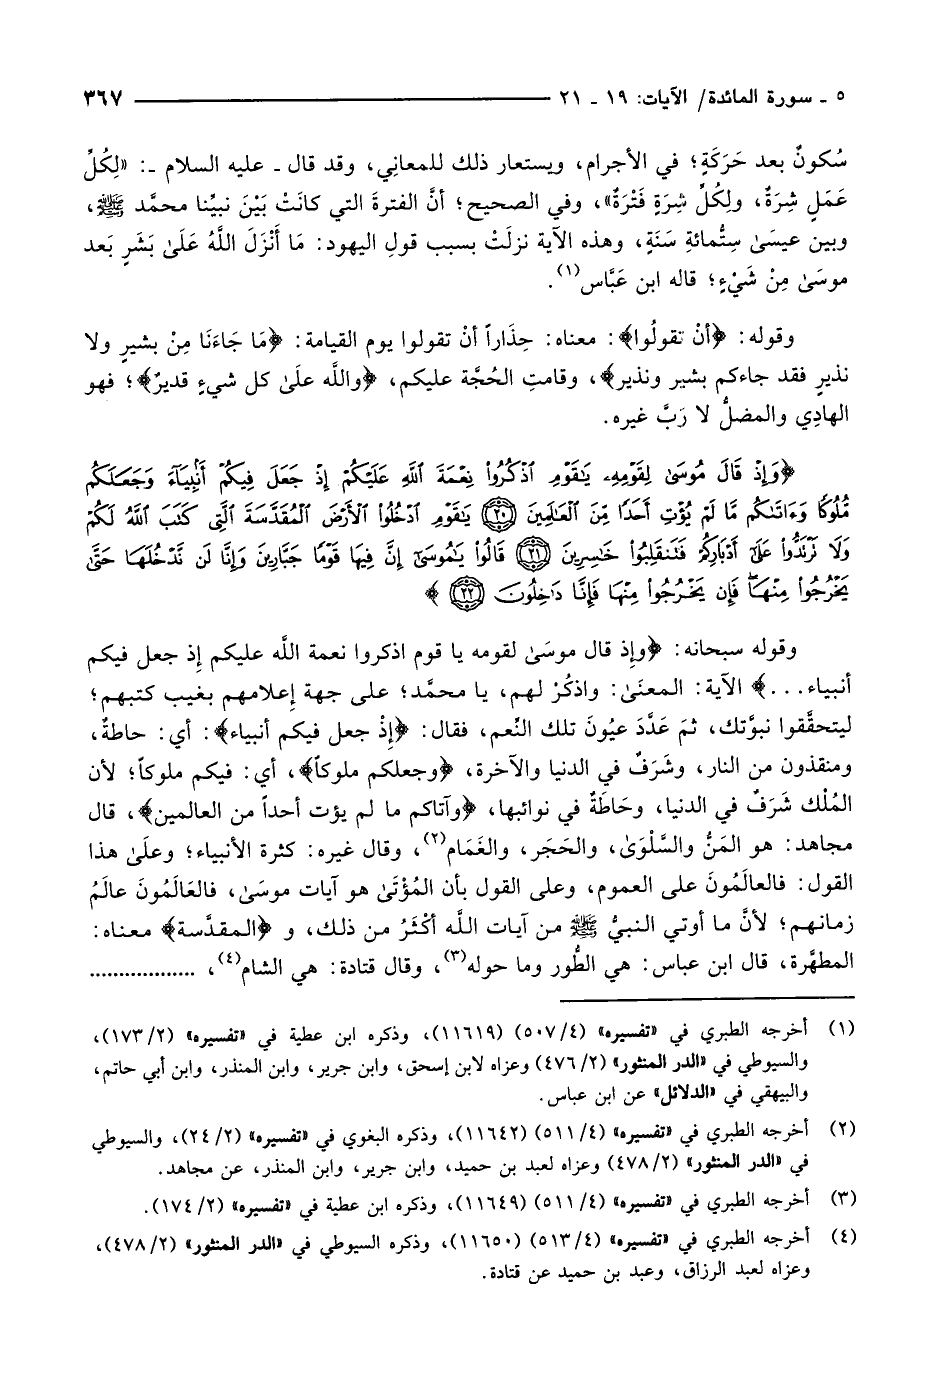 ٥ ـ سورة المائدة/ الآيات: ١٩ ـ ٢١ ٣٦٧
سُكونٌ بعد حَرَكَةٍ؛ في الأجرام، ويستعار ذلك للمعانِي، وقد قال ـ عليه السلام ـ: «لِكُلِّ
عَمَلٍ شِرَةٌ، ولِكُلِّ شِرَةٍ فَتْرَةٌ»، وفي الصحيح؛ أنَّ الفترةَ التي كانَتْ بَيْنَ نبيِّنا محمَّد ﷺ،
وبين عيسَىٰ ستُّمائةِ سَنَةٍ، وهذه الآية نزلَتْ بسبب قولِ اليهود: مَا أَنْزَلَ اللَّهُ عَلَىٰ بَشَرٍ بَعد
موسَىٰ مِنْ شَيْءٍ؛ قاله ابن عَبَّاس(١).
وقوله: ﴿أنْ تقولُوا﴾: معناه: حِذَاراً أنْ تقولوا يوم القيامة: ﴿مَا جَاءَنَا مِنْ بشيرٍ ولا
نذيرٍ فقد جاءكم بشير ونذير﴾، وقامتِ الحُجَّة عليكم، ﴿واللَّه علَىٰ كل شيءٍ قديرٌ﴾؛ فهو
الهادِي والمضلُّ لا رَبَّ غيره.
﴿وَإِذْ قَالَ مُوسَىٰ لِقَوْمِهِۦ يَٰقَوْمِ ٱذْكُرُوا۟ نِعْمَةَ ٱللَّهِ عَلَيْكُمْ إِذْ جَعَلَ فِيكُمْ أَنۢبِيَآءَ وَجَعَلَكُم
مُّلُوكًا وَءَاتَىٰكُم مَّا لَمْ يُؤْتِ أَحَدًا مِّنَ ٱلْعَٰلَمِينَ ﴿٢٠﴾ يَٰقَوْمِ ٱدْخُلُوا۟ ٱلْأَرْضَ ٱلْمُقَدَّسَةَ ٱلَّتِى كَتَبَ ٱللَّهُ لَكُمْ
وَلَا تَرْتَدُّوا۟ عَلَىٰٓ أَدْبَارِكُمْ فَتَنقَلِبُوا۟ خَٰسِرِينَ ﴿٢١﴾ قَالُوا۟ يَٰمُوسَىٰٓ إِنَّ فِيهَا قَوْمًا جَبَّارِينَ وَإِنَّا لَن نَّدْخُلَهَا حَتَّىٰ
يَخْرُجُوا۟ مِنْهَا فَإِن يَخْرُجُوا۟ مِنْهَا فَإِنَّا دَٰخِلُونَ ﴿٢٢﴾ ﴾
وقوله سبحانه: ﴿وإذ قال موسَىٰ لقومه يا قوم اذكروا نعمة اللَّه عليكم إذ جعل فيكم
أنبياء...﴾ الآية: المعنَىٰ: واذكُرْ لهم، يا محمَّد؛ على جهة إعلامهم بغيب كتبهم؛
ليتحقَّقوا نبوَّتك، ثمَ عَدَّدَ عيُونَ تلك النِّعم، فقال: ﴿إذْ جعل فيكم أنبياء﴾: أي: حاطةٌ،
ومنقذون من النار، وشَرَفٌ في الدنيا والآخرة، ﴿وجعلكم ملوكاً﴾، أي: فيكم ملوكاً؛ لأن
المُلْك شَرَفٌ في الدنيا، وحَاطَةٌ في نوائبها، ﴿وآتاكم ما لم يؤت أحداً من العالمين﴾، قال
مجاهد: هو المَنُّ والسَّلْوَىٰ، والحَجَر، والغَمَام(٢)، وقال غيره: كثرة الأنبياء؛ وعلَىٰ هذا
القول: فالعالَمُونَ على العموم، وعلى القول بأن المُؤْتَىٰ هو آيات موسَىٰ، فالعَالَمُونَ عالَمُ
زمانهم؛ لأنَّ ما أوتي النبيُّ ﷺ من آيات اللَّه أكْثَرُ من ذلك، و ﴿المقدَّسة﴾ معناه:
المطهَّرة، قال ابن عباس: هي الطُّور وما حوله(٣)، وقال قتادة: هي الشام(٤)، ..................
(١) أخرجه الطبري في «تفسيره» (٤/ ٥٠٧) (١١٦١٩)، وذكره ابن عطية في «تفسيره» (٢/ ١٧٣)،
والسيوطي في «الدر المنثور» (٢/ ٤٧٦) وعزاه لابن إسحق، وابن جرير، وابن المنذر، وابن أبي حاتم،
والبيهقي في «الدلائل» عن ابن عباس.
(٢) أخرجه الطبري في «تفسيره» (٤/ ٥١١) (١١٦٤٢)، وذكره البغوي في «تفسيره» (٢/ ٢٤)، والسيوطي
في «الدر المنثور» (٢/ ٤٧٨) وعزاه لعبد بن حميد، وابن جرير، وابن المنذر، عن مجاهد.
(٣) أخرجه الطبري في «تفسيره» (٤/ ٥١١) (١١٦٤٩)، وذكره ابن عطية في «تفسيره» (٢/ ١٧٤).
(٤) أخرجه الطبري في «تفسيره» (٤/ ٥١٣) (١١٦٥٠)، وذكره السيوطي في «الدر المنثور» (٢/ ٤٧٨)،
وعزاه لعبد الرزاق، وعبد بن حميد عن قتادة.